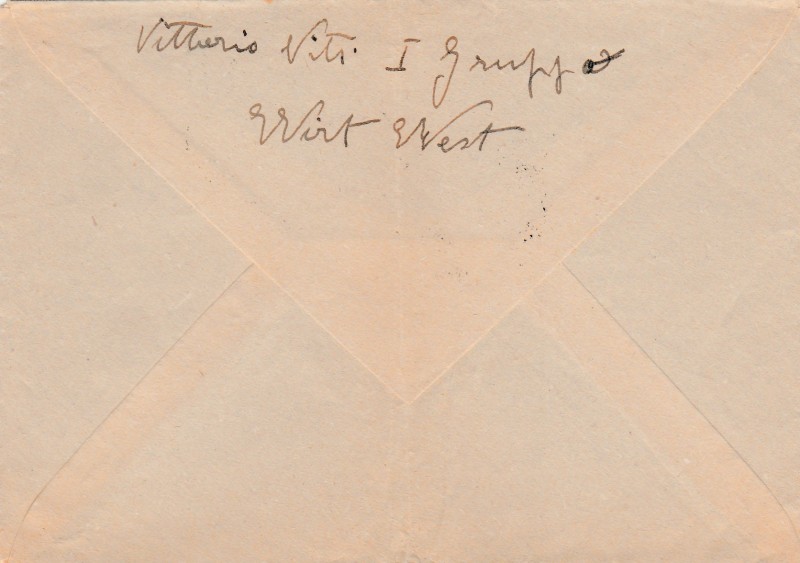 Vittorio Viti I Gruppo
Wirt West